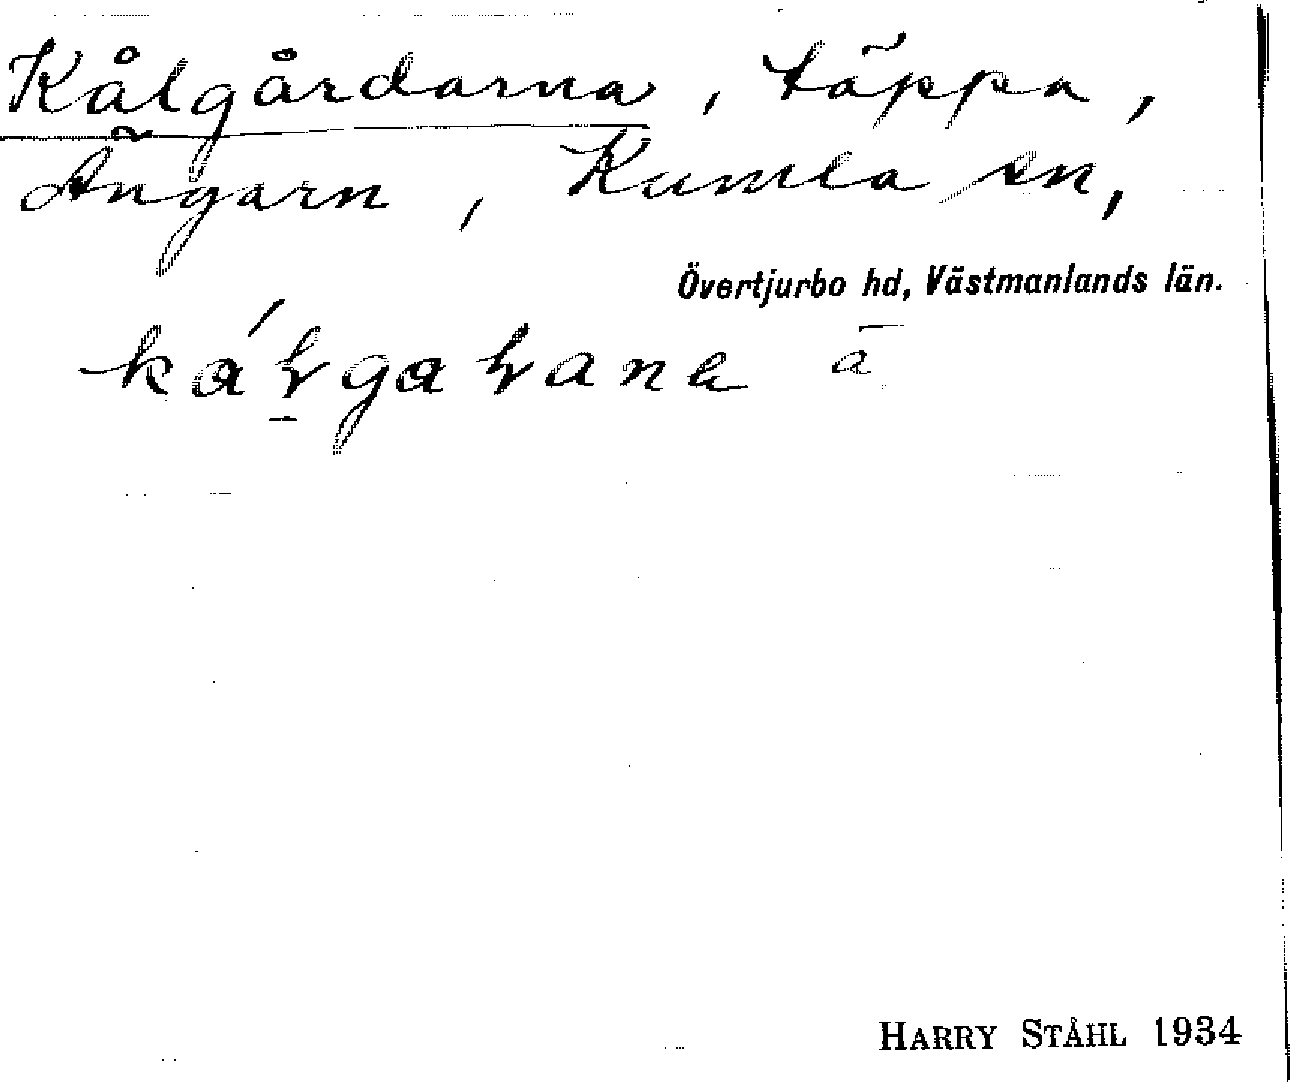 Kålgårdarna, täppa,
Ängarn, Kumla sn,
Övertjurbo hd, Västmanlands län.
HARRY STÅHL 1934